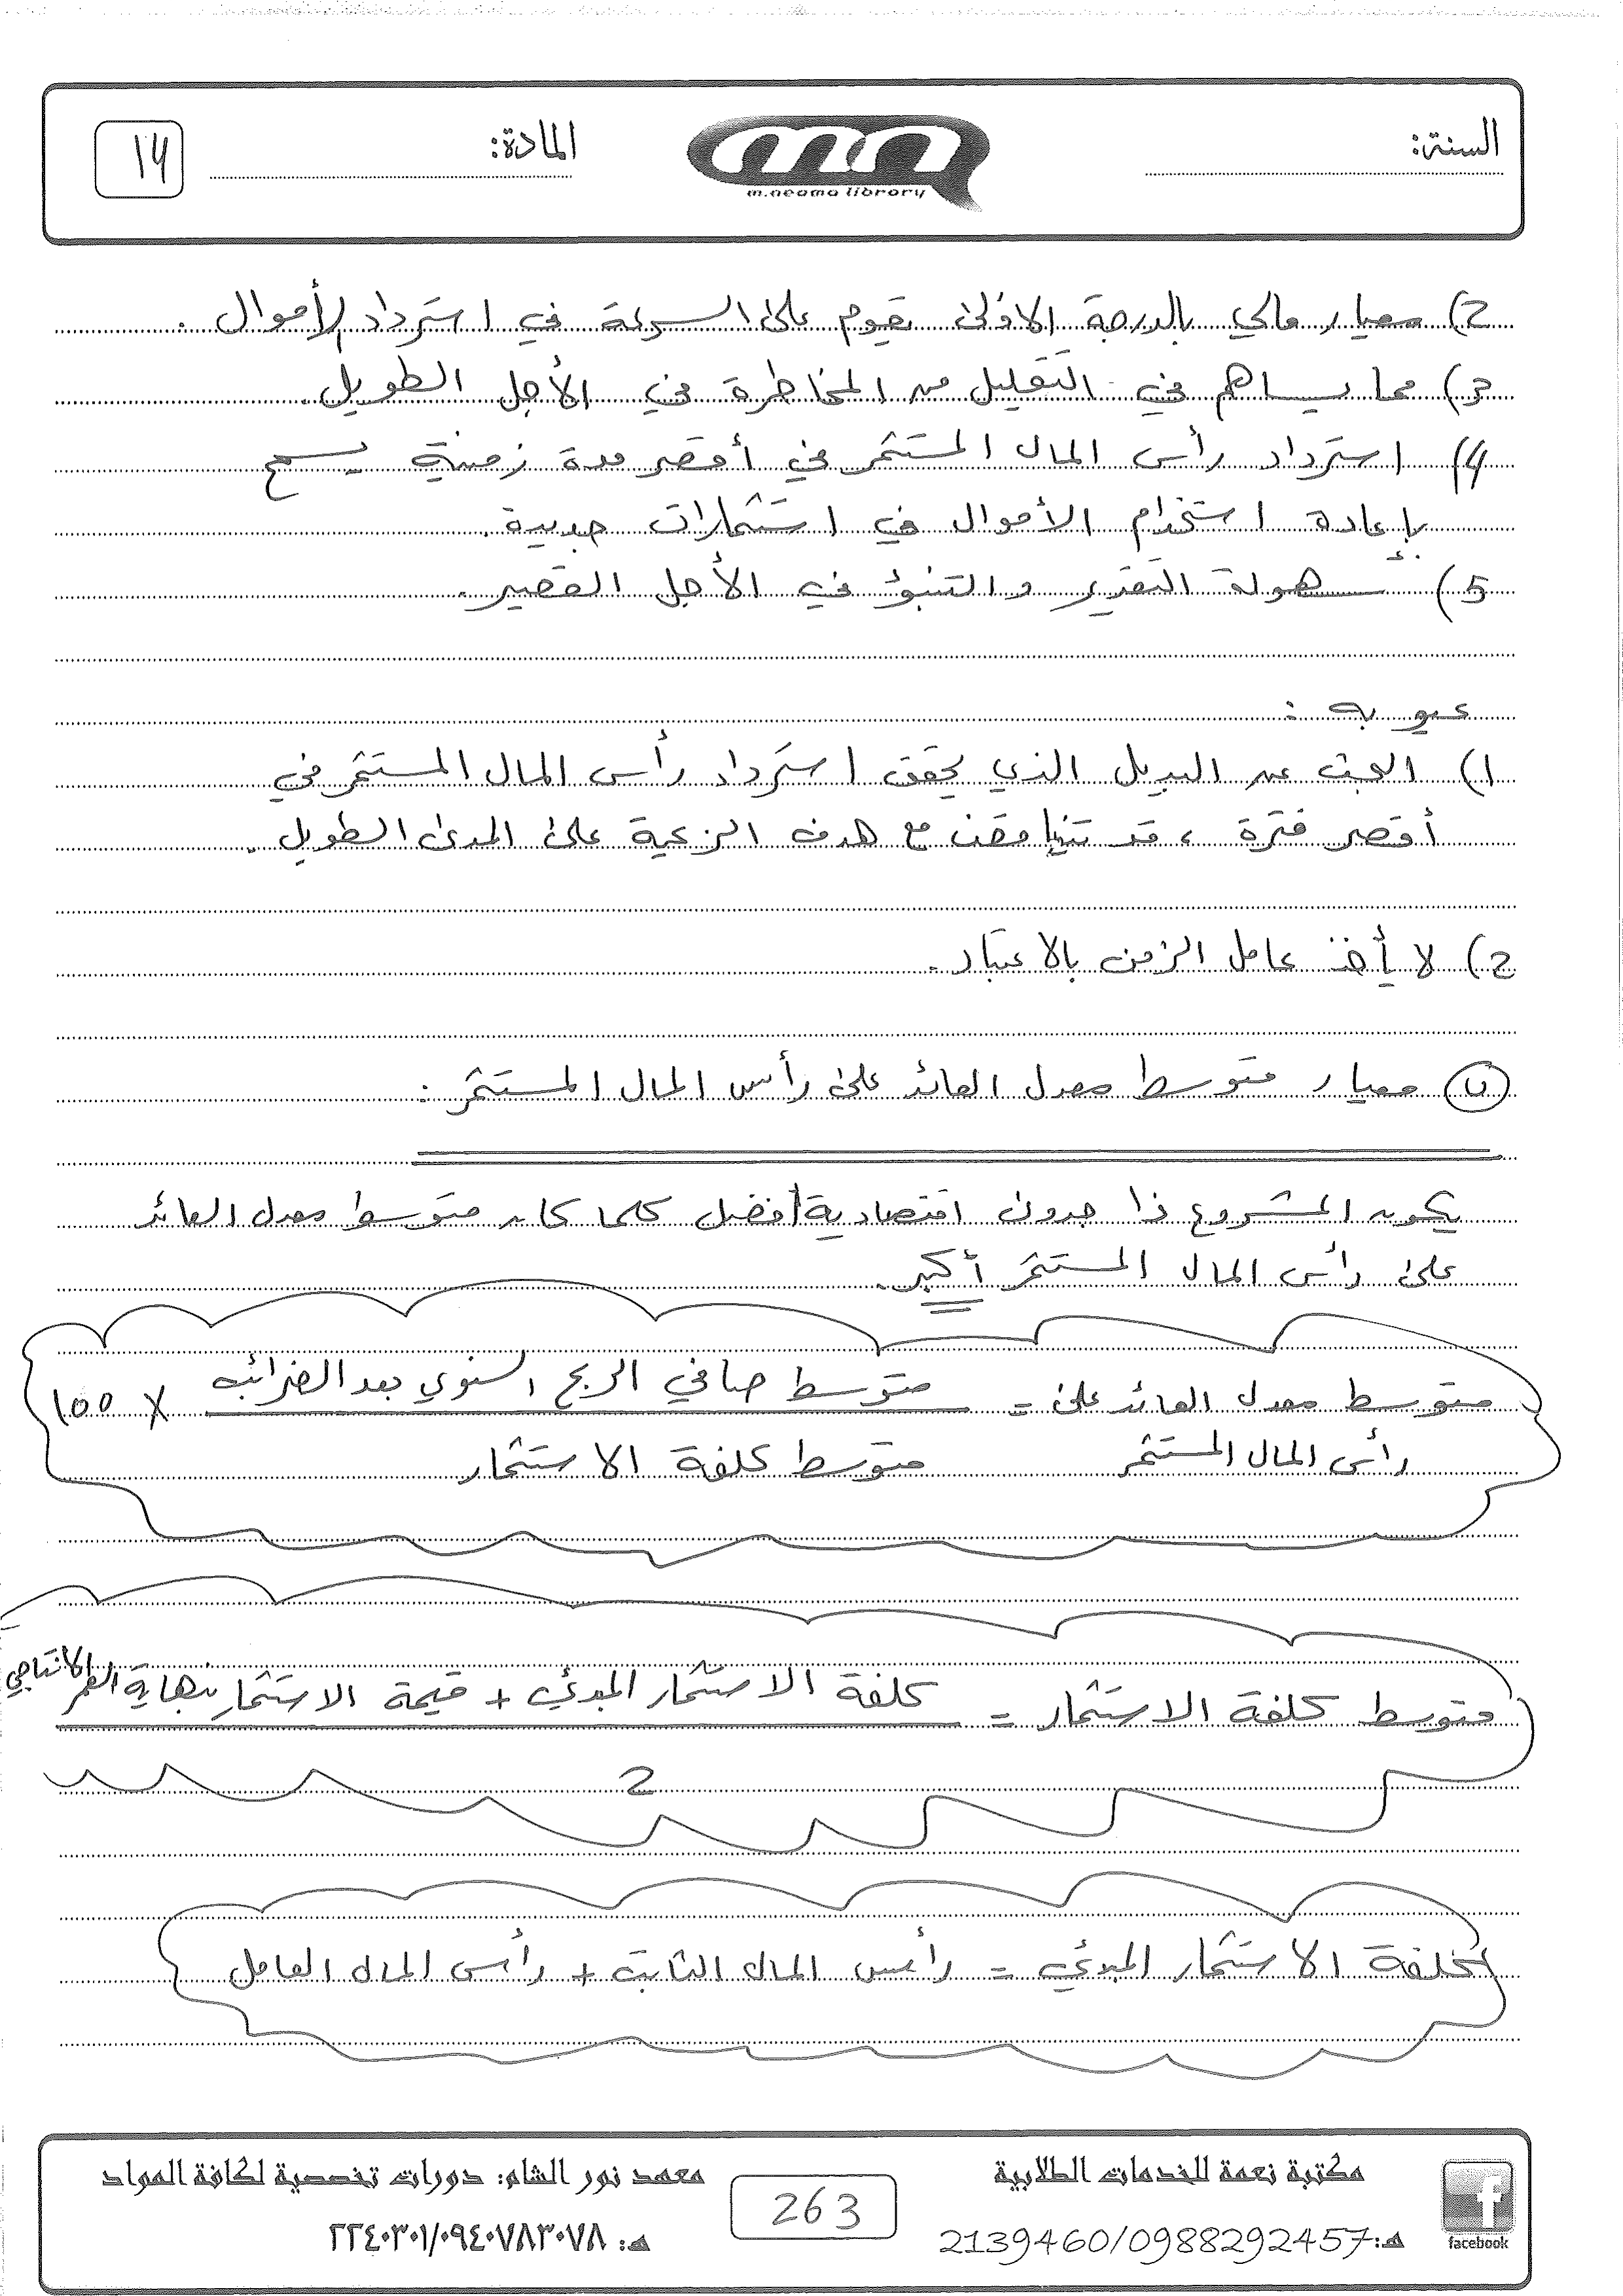 السنة:
m.neama library
المادة:
14
2) معيار مالي بالدرجة الاولى يقوم على السرعة في استرداد الأموال .
3) مما يساهم في التقليل من المخاطرة في الأجل الطويل .
4) استرداد رأس المال المستثمر في أقصر مدة زمنية يسمح
بإعادة استخدام الأموال في استثمارات جديدة .
5) سهولة التقدير والتنبؤ في الأجل القصير .
عيوبه :
1) البحث عن البديل الذي يحقق استرداد رأس المال المستثمر في
أقصر فترة ، قد تتناقض مع هدف الربحية على المدى الطويل .
2) لا يأخذ عامل الزمن بالاعتبار .
ں معيار متوسط معدل العائد على رأس المال المستثمر :
يكون المشروع ذا جدوى اقتصادية أفضل كلما كان متوسط معدل العائد
على رأس المال المستثمر أكبر .
متوسط معدل العائد على = متوسط صافي الربح السنوي بعد الضرائب × 100
رأس المال المستثمر متوسط كلفة الاستثمار
متوسط كلفة الاستثمار = كلفة الاستثمار المبدئي + قيمة الاستثمار بنهاية العمر الانتاجي
2
كلفة الاستثمار المبدئي = رأس المال الثابت + رأس المال العامل
مكتبة نعمة للخدمات الطلابية
هـ: 2139460/0988292457
facebook
263
معهد نور الشام: دورات تخصصية لكافة المواد
هـ: ٢٢٤٠٣٠١/٠٩٤٠٧٨٣٠٧٨